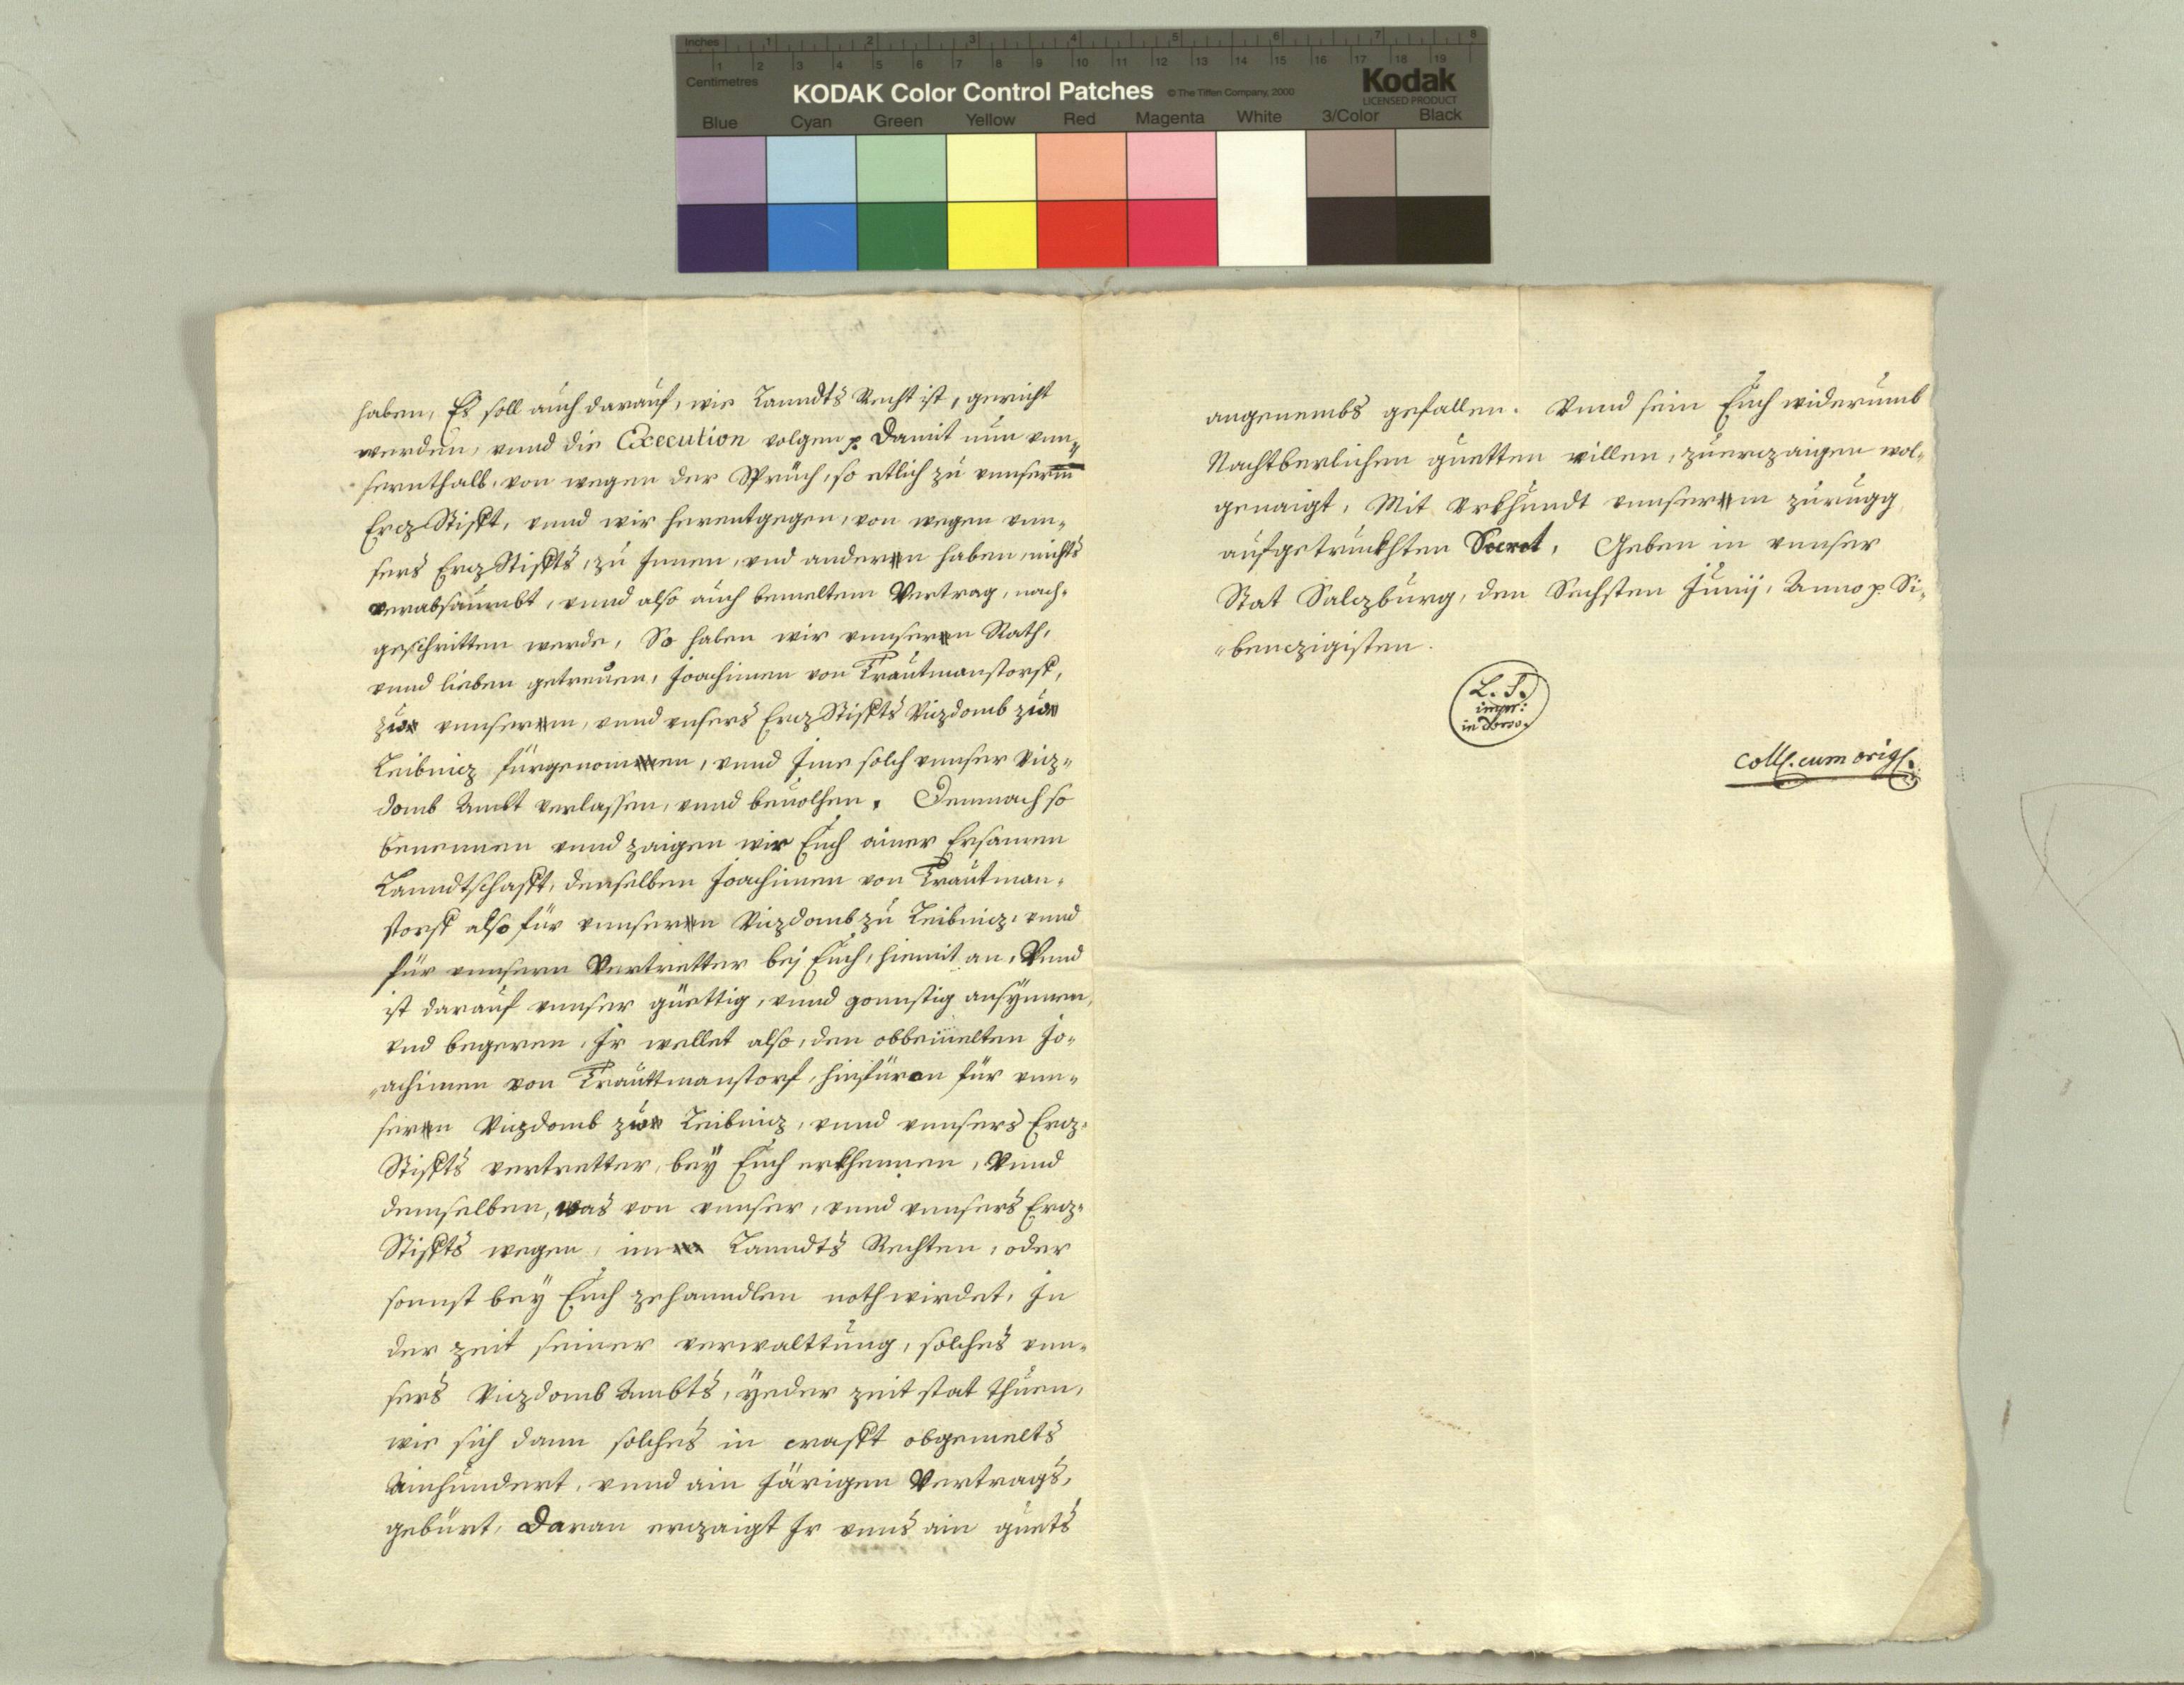 Inches 1 2 3 4 5 6 7 8
1 2 3 4 5 6 7 8 9 10 11 12 13 14 15 16 17 18 19
Centimetres
KODAK Color Control Patches © The Tiffen Company, 2000 Kodak
LICENSED PRODUCT
Blue Cyan Green Yellow Red Magenta White 3/Color Black
haben, Es soll auch darauf, wie Lanndts Recht ist, gericht
werden, vnnd die Execution volgen p. Damit nun vnn-
sernthalb, von wegen der Sprüch, so etlich zu vnnserm
Ercz Stifft, vnnd wir herentgegen, von wegen vnn-
sers Ercz Stiffts, zu Innen, vnd andern haben, nichts
verabsaumbt, vnnd also auch bemeltem Vertrag, nach-
geschritten werde, So haben wir vnnsern Rath,
vnnd lieben getreuen, Joachimen von Trautmanstorff,
zu vnnserm, vnnd vnsers Ercz Stiffts Viczdomb zu
Leibnicz fürgenomen, vnnd Jme solch vnnser Vicz-
domb Ambt verlassen, vnnd beuolhen. Demnach so
benennen vnnd zaigen wir Euch ainer Ersamen
Lanndtschafft, denselben Joachimen von Trautman-
storff also für vnnsern Viczdomb zu Leibnicz, vnnd
für vnnsern Vertretter bej Euch, hiemit an, Vnnd
ist darauf vnnser güettig, vnnd gonnstig ansynnen,
vnd begeren, Jr wellet also, den obbemelten Jo-
achimen von Trauttmanstorf, hinfüran für vnn-
sern Viczdomb zu Leibnicz, vnnd vnnsers Ercz-
Stiffts vertretter, bey Euch erkhennen, Vnnd
demselben, was von vnnser, vnnd vnnsers Ercz-
Stiffts wegen, im Lanndts Rechten, oder
sonnst bey Euch zehanndlen noth wirdet, Jn
der zeit seiner verwalttung, solches vnn-
sers Viczdomb Ambts, yeder zeit stat thuen,
wie sich dann solches in crafft obgemelts
Ainhundert, vnnd ain Järigen Vertrags,
gebürt, Daran erzaigt Jr vnns ain guets
angenembs gefallen. Vnnd sein Euch widerumb
Nachtberlichen guetten willen, zuerczaigen wol-
genaigt, Mit Vrkhundt vnnserm zurugg
aufgetruckhten Secret, Geben in vnnser
Stat Salczburg, den Sechsten Junij, Anno p. Si-
benczigisten.
L. S.
impr:
in dorso.
coll. cum origl.